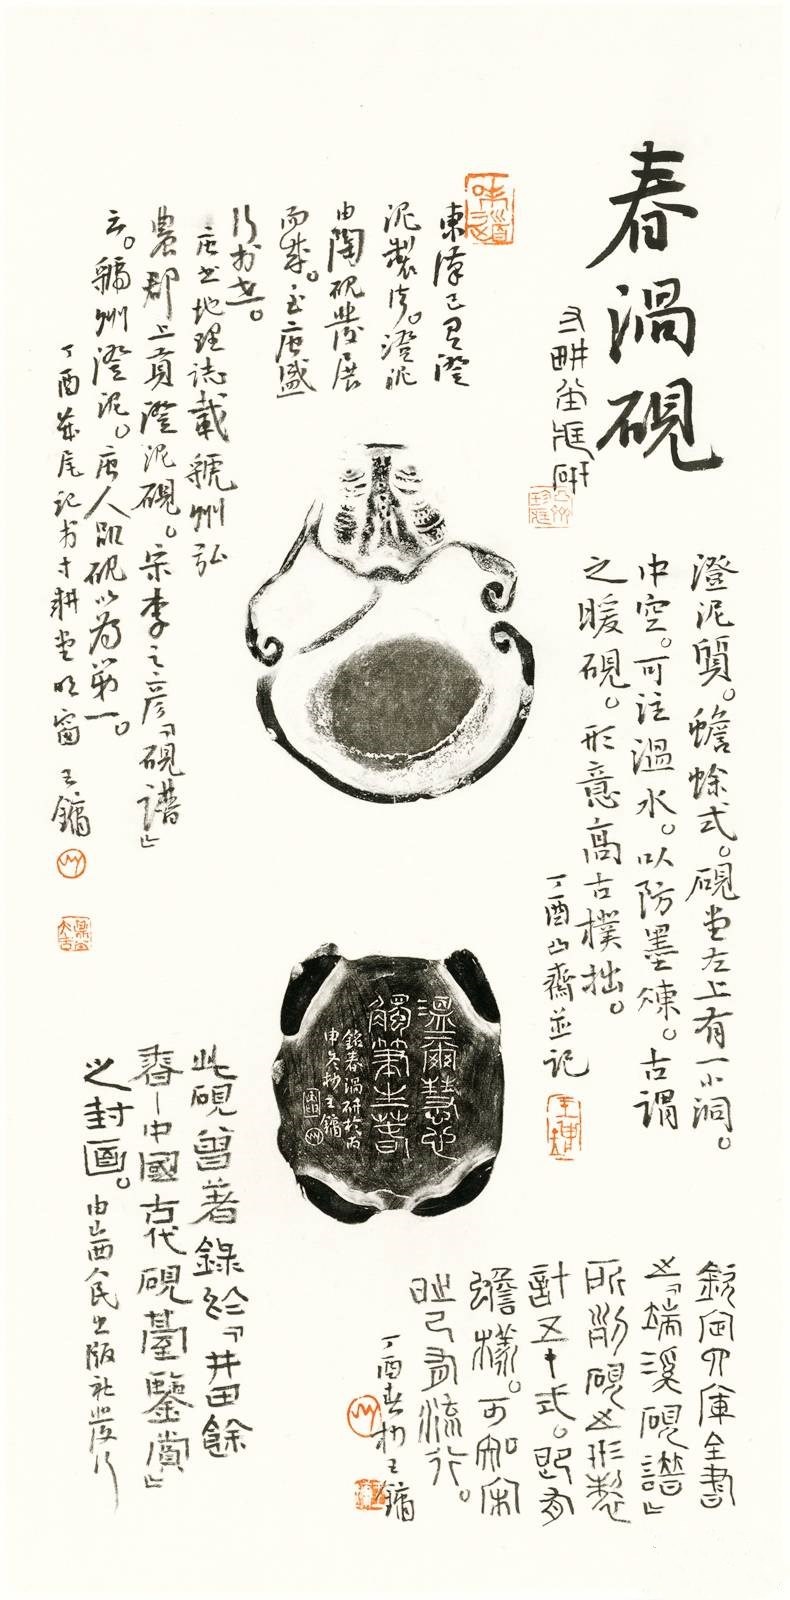 春渦硯
澄泥質。蟾蜍式。硯堂左上有一小洞。
中空。可注溫水。以防墨凍。古謂
之暖硯。形意高古樸拙。
丁酉山齋並記
東漢已有澄
泥製作。澄泥
由陶硯發展
而成。至唐盛
行於世。
唐書地理誌載虢州弘
農郡上貢澄泥硯。宋李之彥「硯譜」
云。虢州澄泥。唐人品硯以為第一。
丁酉歲尾記於寸耕堂明窗 王鏞
溫爾慧心
觸筆生春
銘春渦研於丙
申冬杪王鏞
欽定四庫全書
之「端溪硯譜」
所附硯之形製
計五十式。即有
蟾樣。可知宋
時已有流行。
丁酉春杪王鏞
此硯曾著錄於「井田餘
春—中國古代硯臺鑒賞」
之封面。由山西人民出版社發行